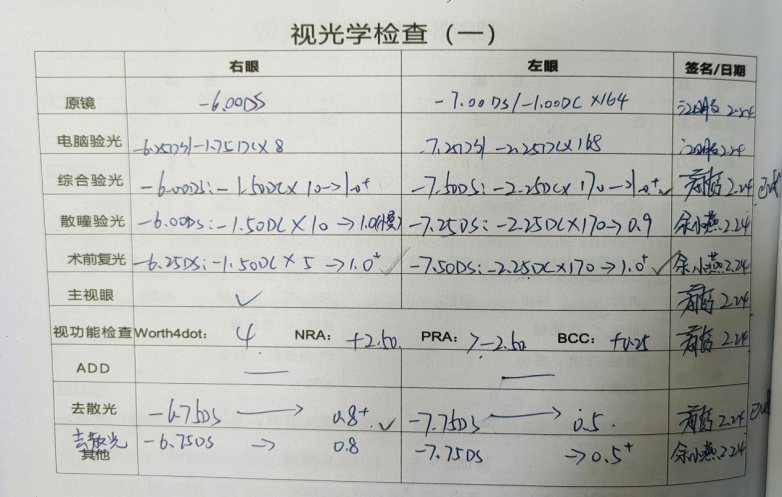 视光学检查（一）
右眼 左眼 签名/日期
原镜 -6.00DS -7.00DS/-1.00DC×164 2.24
电脑验光 -6.25DS/-1.75DC×8 -7.25DS/-2.25DC×168 2.24
综合验光 -6.00DS:-1.50DC×10→1.0+ -7.50DS:-2.25DC×170→1.0+✓ 2.24
散瞳验光 -6.00DS:-1.50DC×10→1.0(慢) -7.25DS:-2.25DC×170→0.9 余小燕 2.24
术前复光 -6.25DS:-1.50DC×5→1.0+✓ -7.50DS:-2.25DC×170→1.0+✓ 余小燕 2.24
主视眼 ✓ 2.24
视功能检查 Worth4dot: 4 NRA: +2.50 PRA: >-2.50 BCC: +0.25 2.24
ADD — —
去散光 -6.75DS → 0.8+✓ -7.75DS → 0.5 2.24
去散光
其他 -6.75DS → 0.8 -7.75DS → 0.5+ 余小燕 2.24